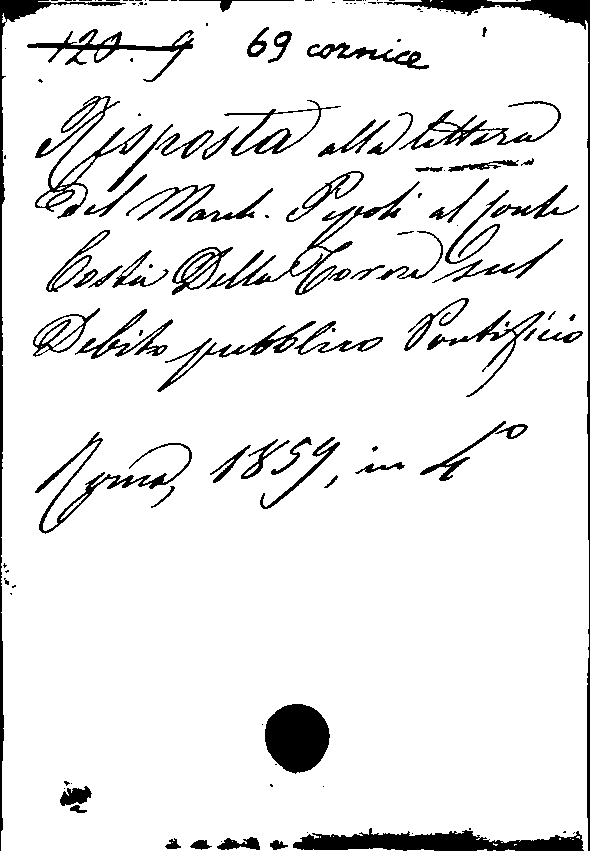 120. 9 69 cornice
Risposta alla lettera
del March. Pepoli al Conte
Costa Della Torre sul
Debito pubblico Pontificio
Roma, 1859, in 4º